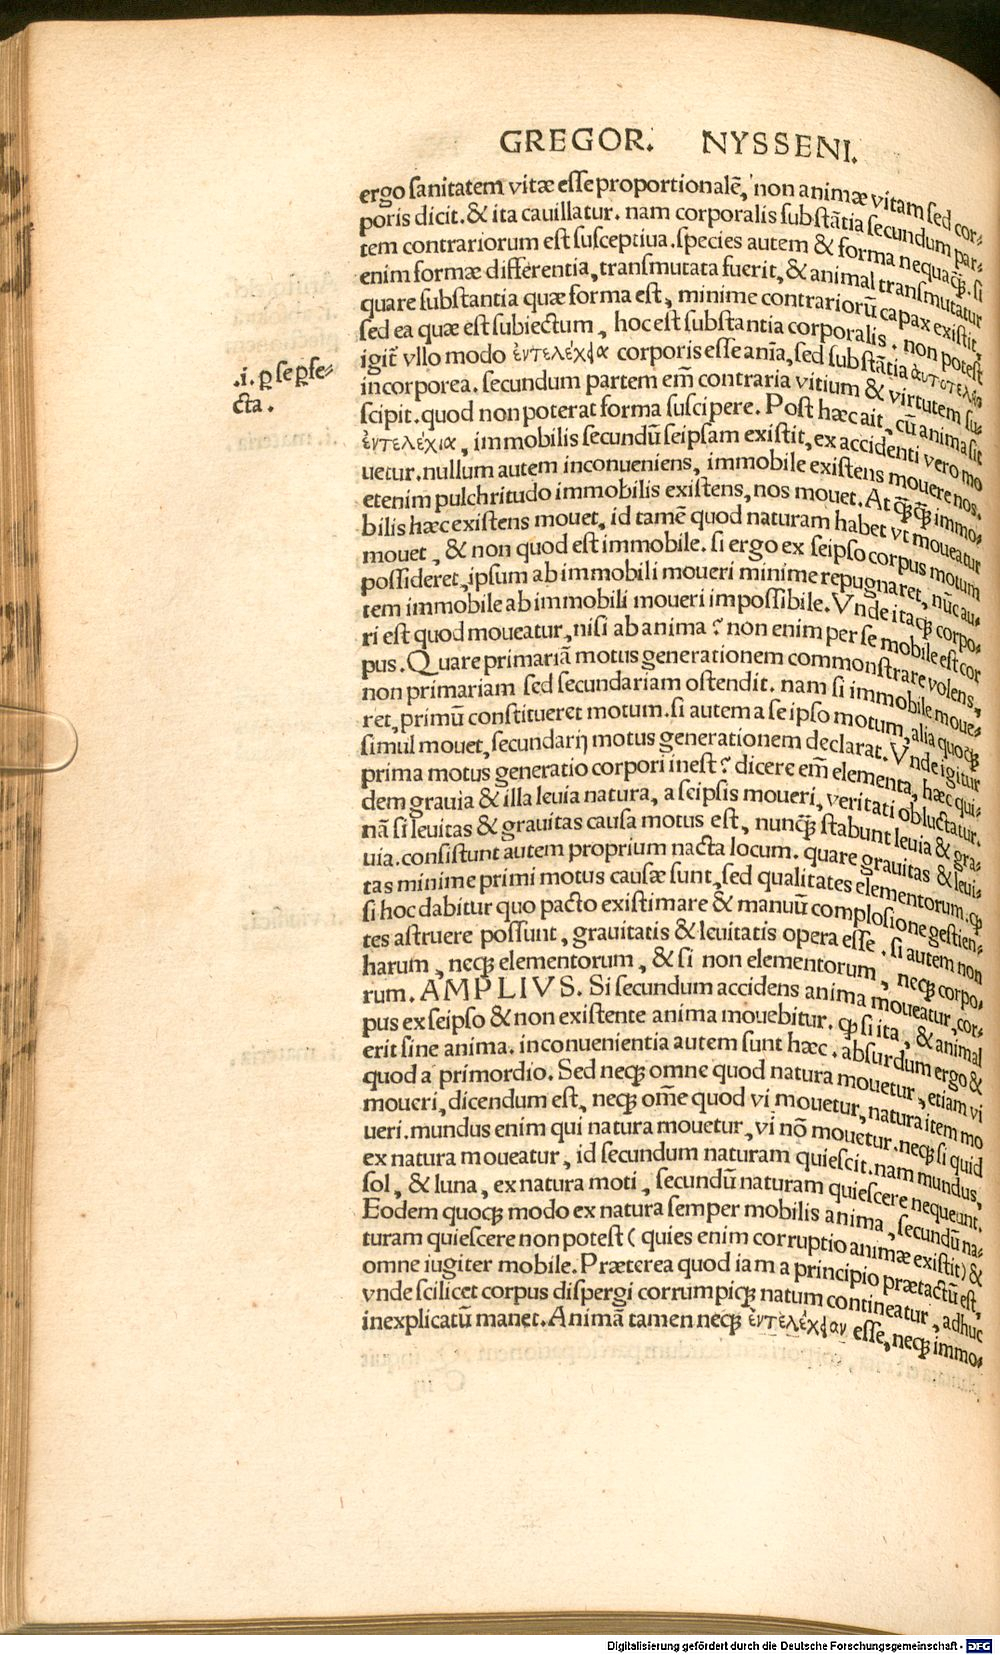 GREGOR. NYSSENI.
ergo ſanitatem vitæ eſſe proportionalē, non animæ vitam ſed cor-
poris dicit. & ita cauillatur. nam corporalis ſubſtātia ſecundum par-
tem contrariorum eſt ſuſceptiua. ſpecies autem & forma nequaꝗ̃. ſi
enim formæ differentia, tranſmutata fuerit, & animal tranſmutatur
quare ſubſtantia quæ forma eſt, minime contrariorū capax exiſtit,
ſed ea quæ eſt ſubiectum, hoc eſt ſubſtantia corporalis. non poteſt
igit̃ vllo modo ἐντελέχεια corporis eſſe aīa, ſed ſubſtātia αὐτοτελὴς
.i. ꝑ ſe ꝑfe-
cta.
incorporea. ſecundum partem em̄ contraria vitium & virtutem ſu-
ſcipit. quod non poterat forma ſuſcipere. Poſt hæc ait, cū anima ſit
ἐντελέχια, immobilis ſecundū ſeipſam exiſtit, ex accidenti vero mo
uetur. nullum autem inconueniens, immobile exiſtens mouere nos.
etenim pulchritudo immobilis exiſtens, nos mouet. At ꝗ̃ꝗ̃ immo-
bilis hæc exiſtens mouet, id tamē quod naturam habet vt moueatur
mouet, & non quod eſt immobile. ſi ergo ex ſeipſo corpus motum
poſſideret, ipſum ab immobili moueri minime repugnaret, nūc au-
tem immobile ab immobili moueri impoſſibile. Vnde itaqꝫ corpo-
ri eſt quod moueatur, niſi ab anima? non enim per ſe mobile eſt cor
pus. Quare primariā motus generationem commonſtrare volens,
non primariam ſed ſecundariam oſtendit. nam ſi immobile moue-
ret, primū conſtitueret motum. ſi autem a ſe ipſo motum, alia quoqꝫ
ſimul mouet, ſecundarij motus generationem declarat. Vnde igitur
prima motus generatio corpori ineſt? dicere em̄ elementa, hæc qui-
dem grauia & illa leuia natura, a ſeipſis moueri, veritati obluctatur.
nā ſi leuitas & grauitas cauſa motus eſt, nunꝗ̃ ſtabunt leuia & gra-
uia. conſiſtunt autem proprium nacta locum. quare grauitas & leui-
tas minime primi motus cauſæ ſunt, ſed qualitates elementorum. ꝙ
ſi hoc dabitur quo pacto exiſtimare & manuū comploſione geſtien-
tes aſtruere poſſunt, grauitatis & leuitatis opera eſſe. ſi autem non
harum, neqꝫ elementorum, & ſi non elementorum, neqꝫ corpo-
rum. AMPLIVS. Si ſecundum accidens anima moueatur, cor-
pus ex ſeipſo & non exiſtente anima mouebitur. ꝙ ſi ita, & animal
erit ſine anima. inconuenientia autem ſunt hæc. abſurdum ergo &
quod a primordio. Sed neqꝫ omne quod natura mouetur, etiam vi
moueri, dicendum eſt, neqꝫ om̄e quod vi mouetur, natura item mo
ueri. mundus enim qui natura mouetur, vi nō mouetur. neqꝫ ſi quid
ex natura moueatur, id ſecundum naturam quieſcit. nam mundus,
ſol, & luna, ex natura moti, ſecundū naturam quieſcere nequeunt.
Eodem quoqꝫ modo ex natura ſemper mobilis anima, ſecundū na-
turam quieſcere non poteſt (quies enim corruptio animæ exiſtit) &
omne iugiter mobile. Præterea quod iam a principio prætactū eſt,
vnde ſcilicet corpus diſpergi corrumpiqꝫ natum contineatur, adhuc
inexplicatū manet. Animā tamen neqꝫ ἐντελέχειαν eſſe, neqꝫ immo-
Digitalisierung gefördert durch die Deutsche Forschungsgemeinschaft - DFG